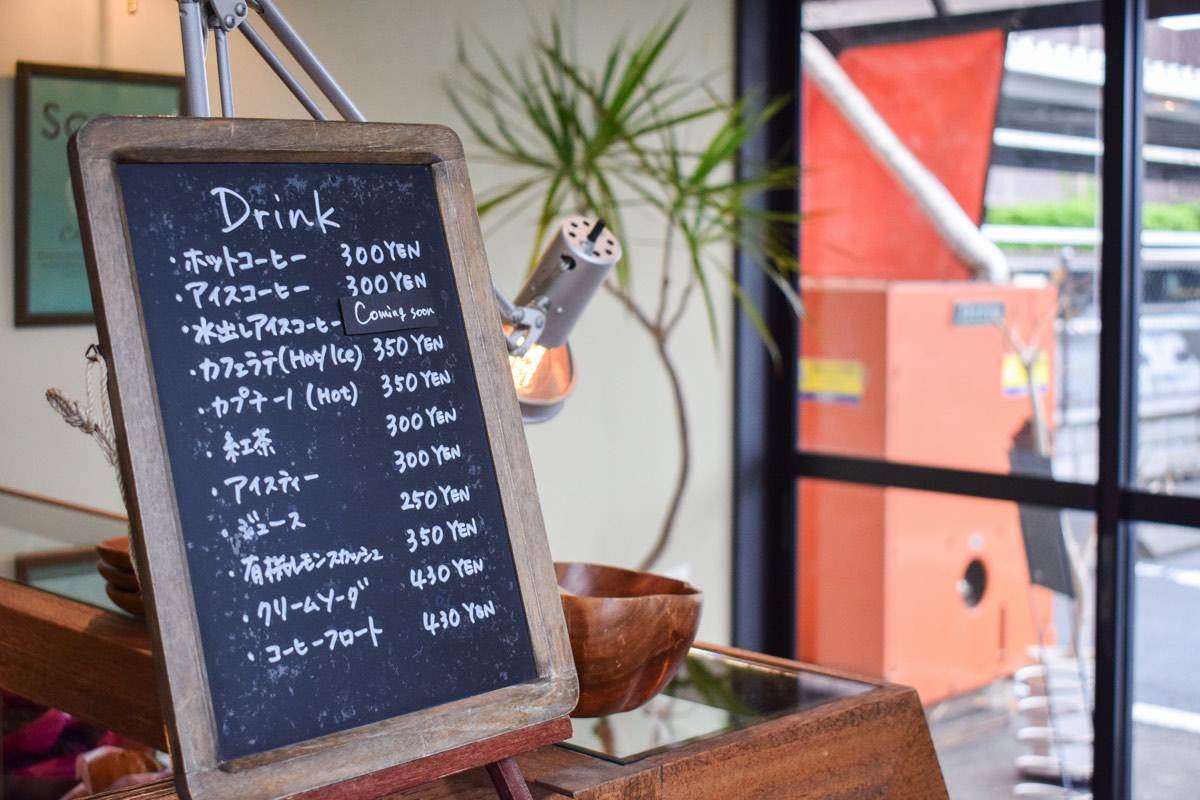 Drink
・ホットコーヒー 300 YEN
・アイスコーヒー 300 YEN
・水出しアイスコーヒー Coming soon
・カフェラテ(Hot/Ice) 350 YEN
・カプチーノ (Hot) 350 YEN
・紅茶 300 YEN
・アイスティー 300 YEN
・ジュース 250 YEN
・有機レモンスカッシュ 350 YEN
・クリームソーダ 430 YEN
・コーヒーフロート 430 YEN